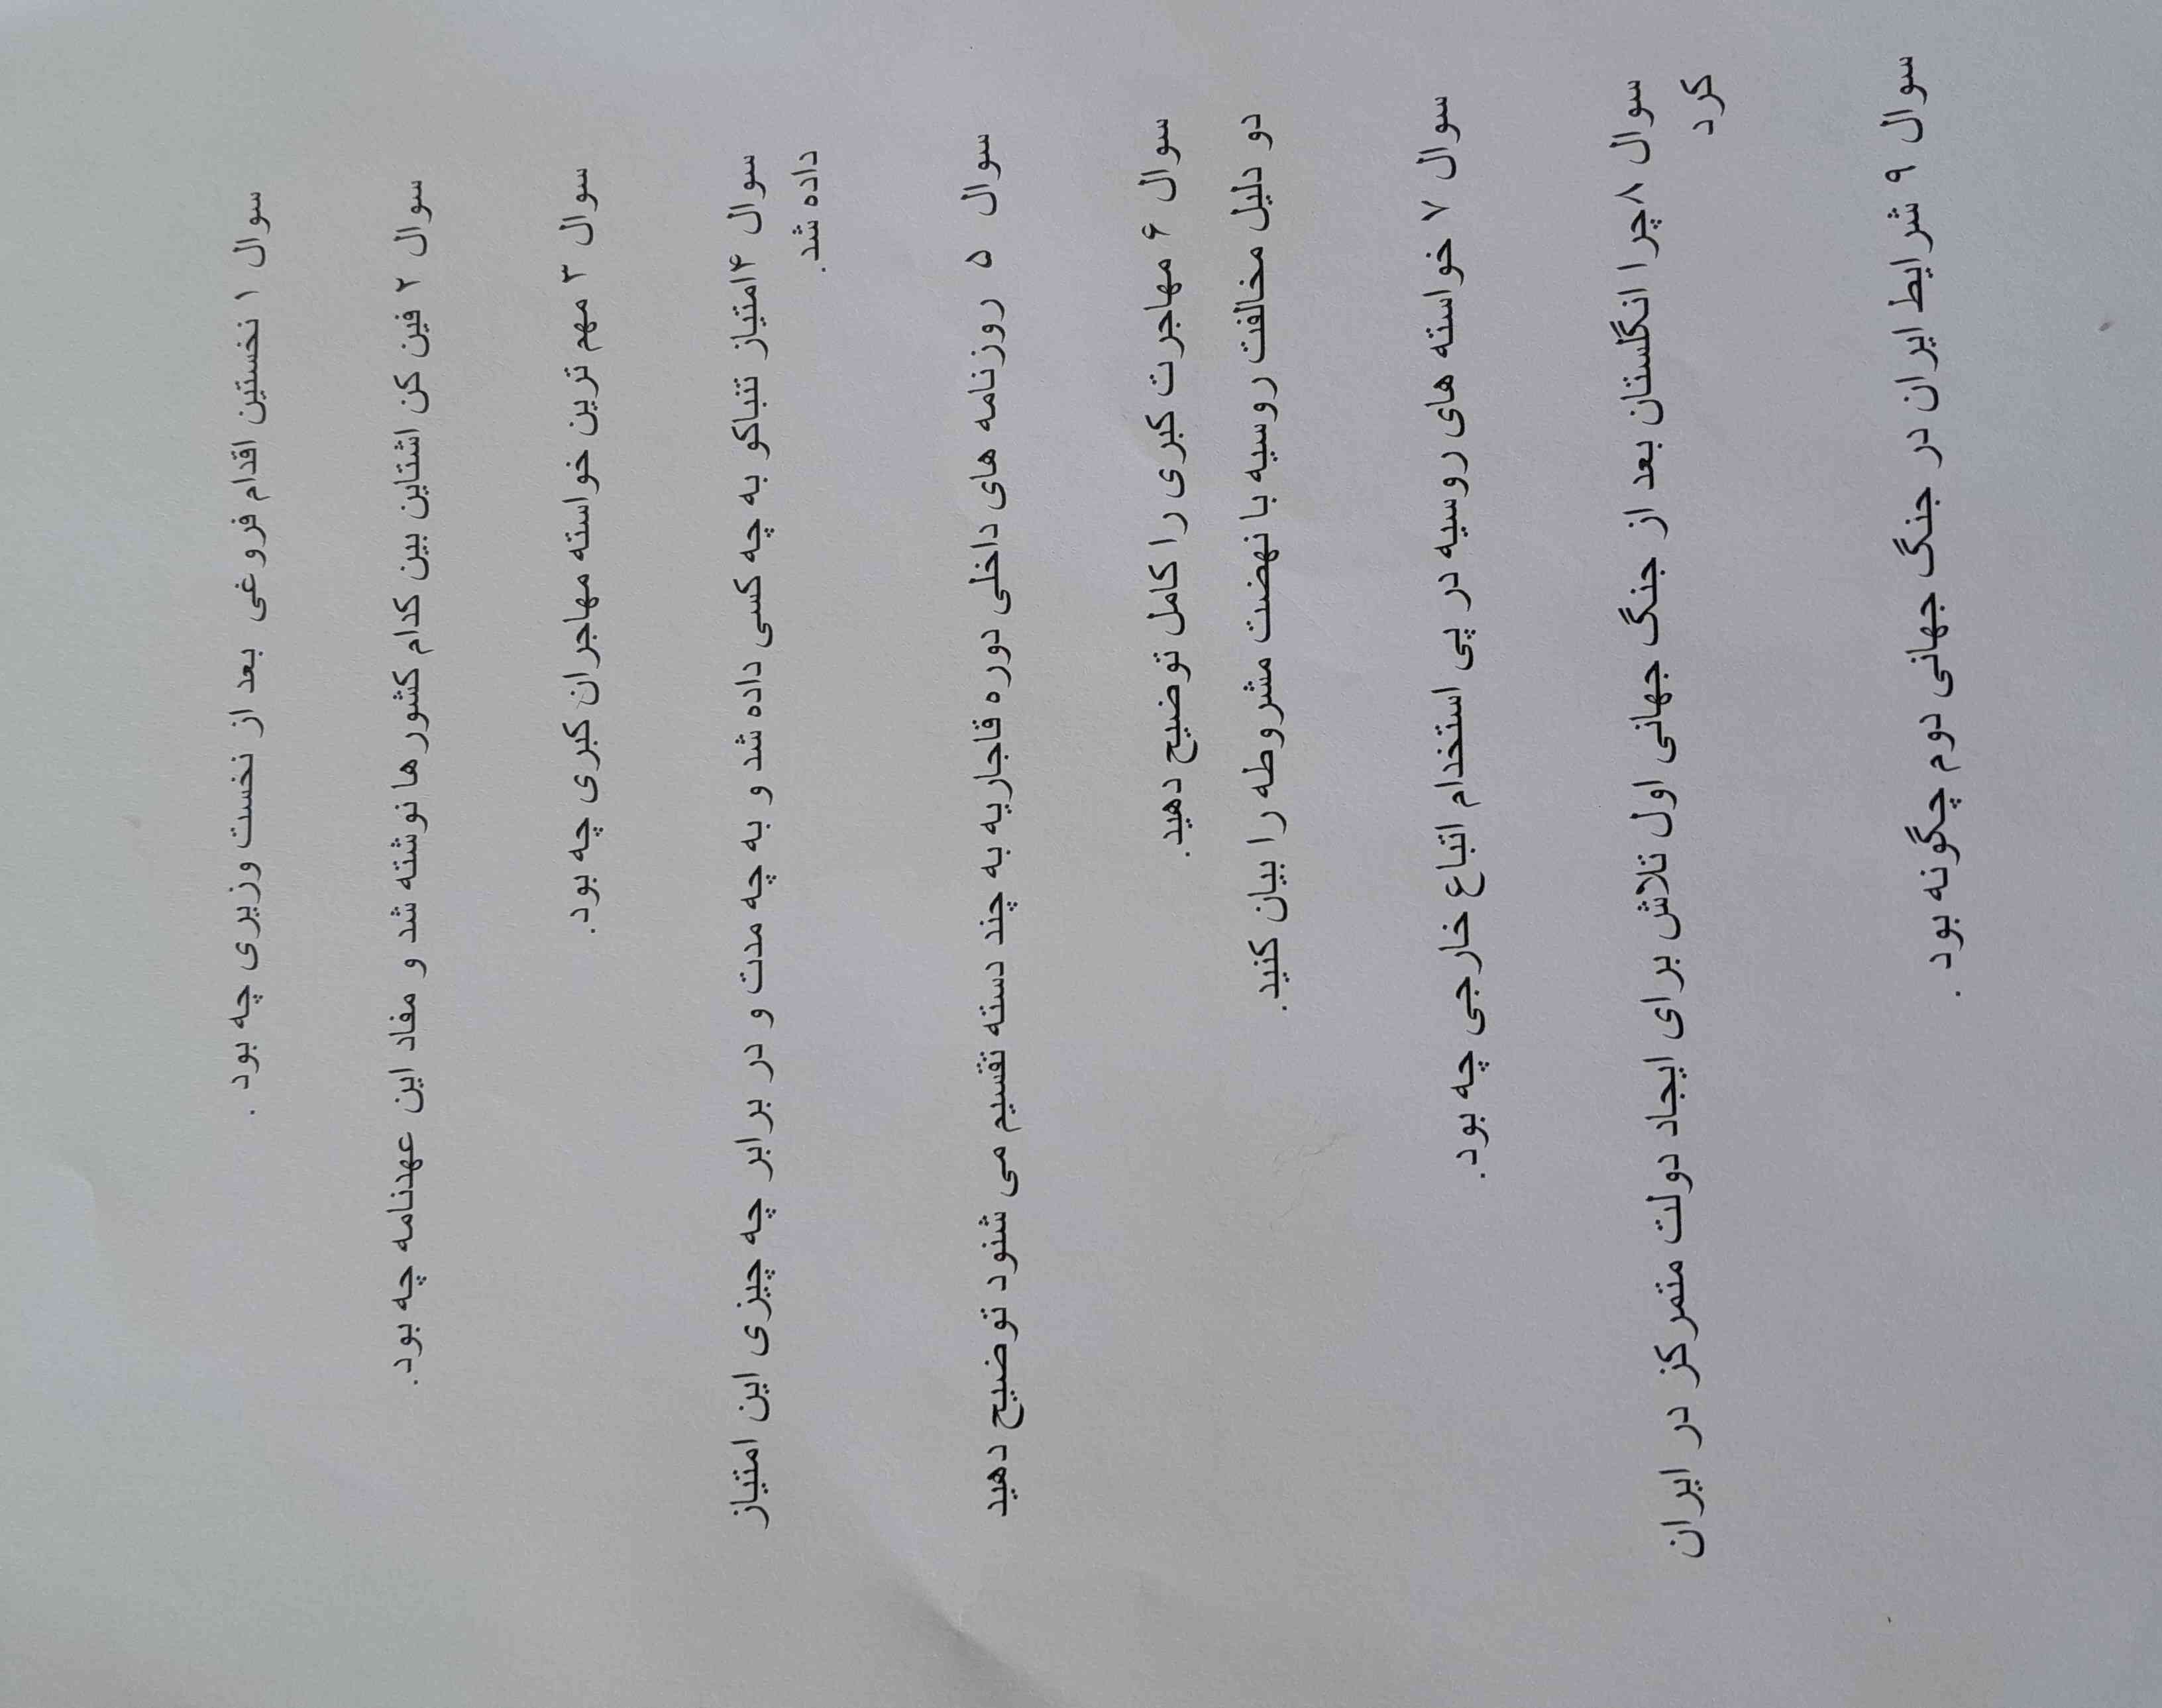 سوال ۱ نخستین اقدام فروغی بعد از نخست وزیری چه بود .
سوال ۲ فین کن اشتاین بین کدام کشورها نوشته شد و مفاد این عهدنامه چه بود.
سوال ۳ مهم ترین خواسته مهاجران کبری چه بود.
سوال ۴امتیاز تنباکو به چه کسی داده شد و به چه مدت و در برابر چه چیزی این امتیاز
داده شد.
سوال ۵ روزنامه های داخلی دوره قاجاریه به چند دسته تقسیم می شنود توضیح دهید
سوال ۶ مهاجرت کبری را کامل توضیح دهید.
دو دلیل مخالفت روسیه با نهضت مشروطه را بیان کنید.
سوال ۷ خواسته های روسیه در پی استخدام اتباع خارجی چه بود.
سوال ۸چرا انگلستان بعد از جنگ جهانی اول تلاش برای ایجاد دولت متمرکز در ایران
کرد
سوال ۹ شرایط ایران در جنگ جهانی دوم چگونه بود .